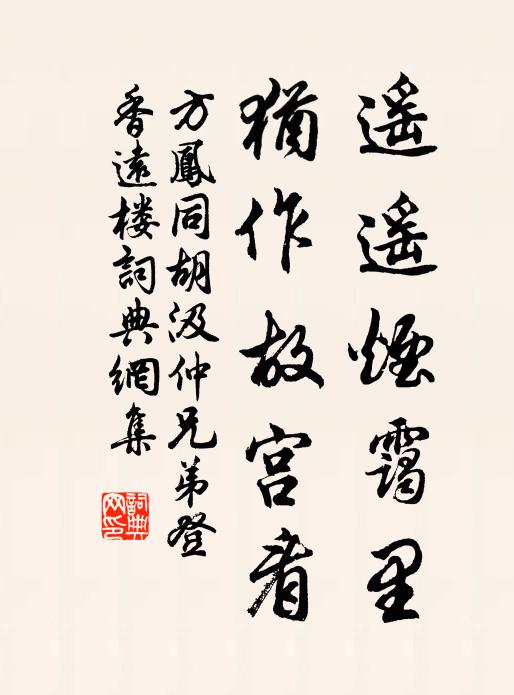 遥遥煙靄里
猶作故宮看
方鳳同胡汲仲兄弟登
香遠楼詞典網集
詞典网印